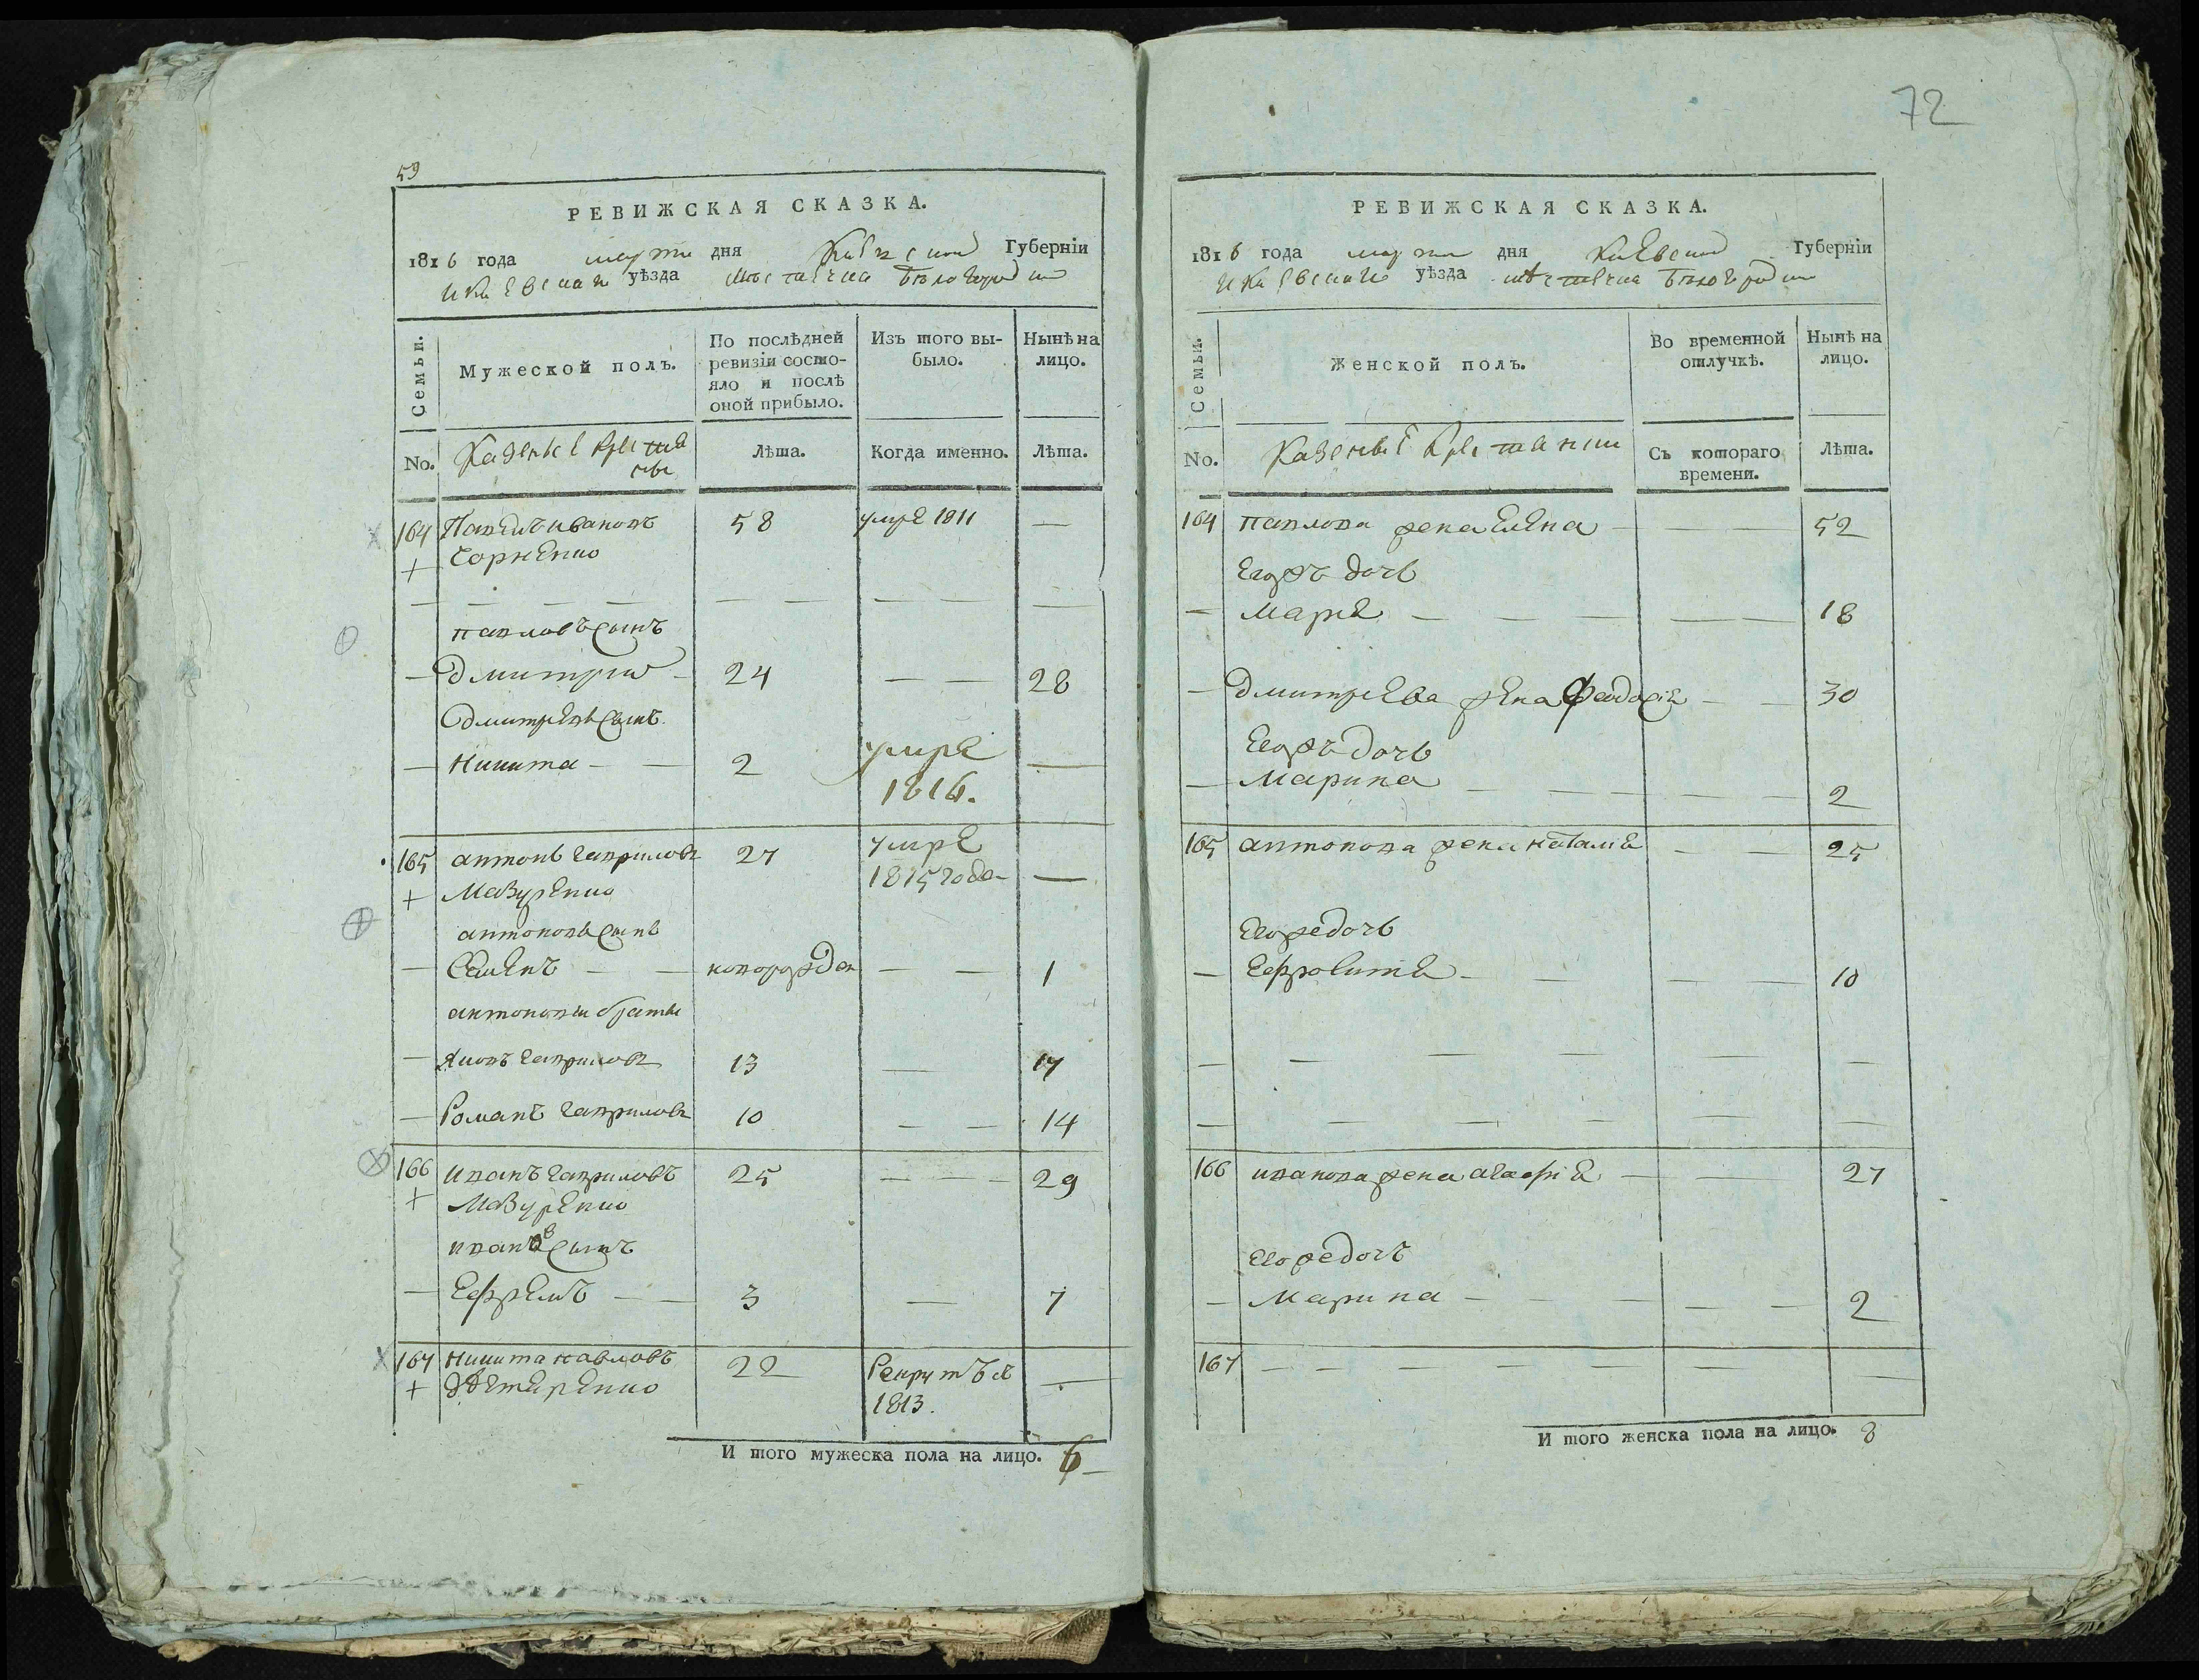 59
РЕВИЖСКАЯ СКАЗКА.
1816 года марта дня Киевской Губерніи
и Киевскаго уѣзда мѣстечка Бѣлогородки
Семьи.
Мужеской полъ.
По послѣдней ревизіи состояло и послѣ оной прибыло.
Изъ того выбыло.
Нынѣ на лицо.
No.
Казенъе крестяне
Лѣта.
Когда именно.
Лѣта.
164 Павелъ ивановъ 58 умре 1811 —
+ Чорненко
павловъ сынъ
— дмитрий — 24 — — 28
дмитревъ сынъ
— Никита — — 2 умре —
1816.
165 антонъ гавриловъ 27 умре
+ Мазуренко 1815 года —
антоновъ сынъ
— Семенъ — — новорожден — — 1
антоновы братья
— Яковъ гавриловъ 13 — 17
— Романъ гавриловъ 10 — — 14
166 иванъ гавриловъ 25 — — — 29
+ Мазуренко
ивановъ сынъ
— Ефремъ — — 3 — 7
167 Никита павловъ 22 Рекрутъ в —
+ 1813.
И того мужеска пола на лицо. 6 —
72
РЕВИЖСКАЯ СКАЗКА.
1816 года марта дня Киевской Губерніи
и Киевскаго уѣзда мѣстечка Бѣлогородки
Семьи.
Женской полъ.
Во временной отлучкѣ.
Нынѣ на лицо.
No.
Казенъе крестянки
Съ котораго времени.
Лѣта.
164 павлова жена Елена — — — 52
Егожъ дочь
— Маря — — — — — 18
— дмитрева жена феодосия — — 30
Егожъ дочь
— Марина — — — — — 2
165 антонова жена наталия — — 25
Егоже дочь
— Ефросиния — — — — 10
— — — — — —
— — — — — —
166 иванова жена агафия — — 27
Егоже дочъ
— Марина — — — — — 2
167 — — — — — — —
И того женска пола на лицо. 8